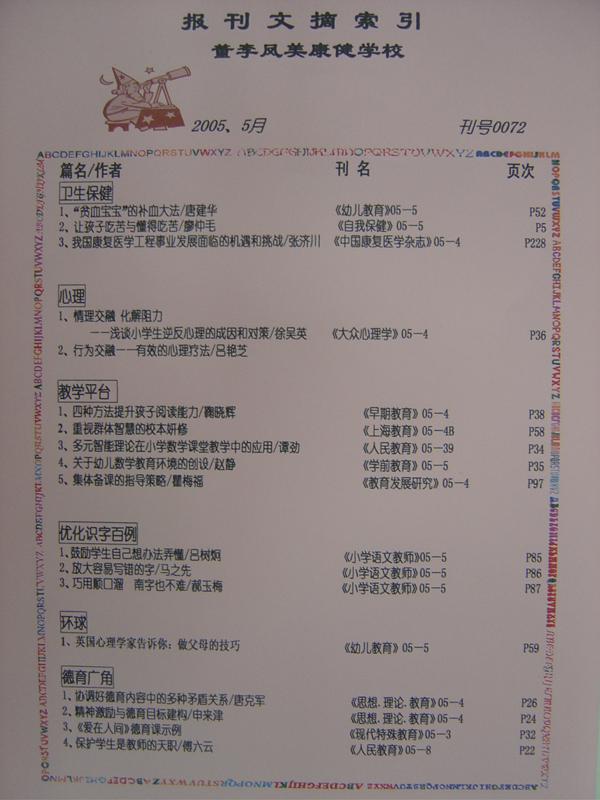 报刊文摘索引
董李凤美康健学校
2005、5月 刊号0072
ABCDEFGHIJKLMNOPQRSTUVWXYZ ABCDEFGHIJKLMNOPQRSTUVWXYZ ABCDEFGHIJKLM
篇名/作者 刊名 页次
卫生保健
1、“贫血宝宝”的补血大法/唐建华 《幼儿教育》05-5 P52
2、让孩子吃苦与懂得吃苦/廖仲毛 《自我保健》05-5 P5
3、我国康复医学工程事业发展面临的机遇和挑战/张济川 《中国康复医学杂志》05-4 P228
心理
1、情理交融 化解阻力
——浅谈小学生逆反心理的成因和对策/徐吴英 《大众心理学》05-4 P36
2、行为交融——有效的心理疗法/吕艳芝
教学平台
1、四种方法提升孩子阅读能力/鞠晓辉 《早期教育》05-4 P38
2、重视群体智慧的校本妍修 《上海教育》05-4B P58
3、多元智能理论在小学数学课堂教学中的应用/谭劲 《人民教育》05-39 P34
4、关于幼儿数学教育环境的创设/赵静 《学前教育》05-5 P35
5、集体备课的指导策略/瞿梅福 《教育发展研究》05-4 P97
优化识字百例
1、鼓励学生自己想办法弄懂/吕树炯 《小学语文教师》05-5 P85
2、放大容易写错的字/马之先 《小学语文教师》05-5 P86
3、巧用顺口溜 南字也不难/郝玉梅 《小学语文教师》05-5 P87
环球
1、英国心理学家告诉你：做父母的技巧 《幼儿教育》05-5 P59
德育广角
1、协调好德育内容中的多种矛盾关系/唐克军 《思想.理论.教育》05-4 P26
2、精神激励与德育目标建构/申来津 《思想.理论.教育》05-4 P24
3、《爱在人间》德育课示例 《现代特殊教育》05-3 P32
4、保护学生是教师的天职/傅六云 《人民教育》05-8 P22